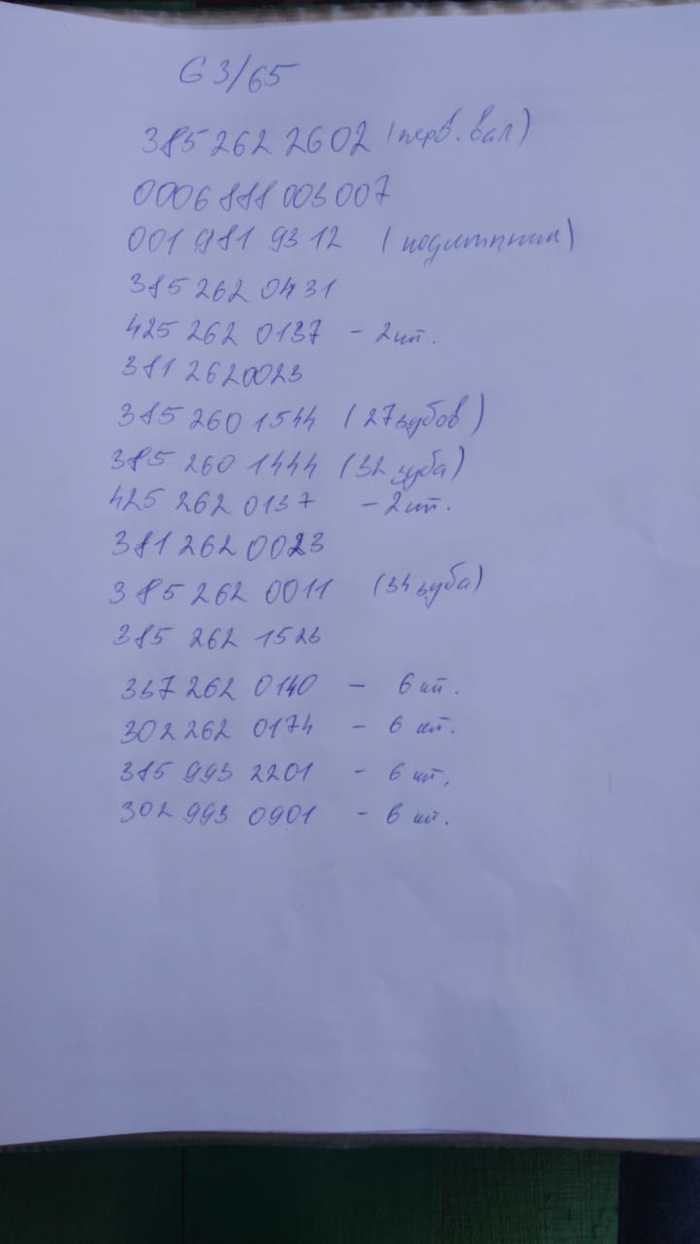 G 3/65
385 262 2602 (перв. вал)
0006 888 003 007
001 981 93 12 (подшипник)
385 262 0431
425 262 0137 - 2 шт.
381 262 0023
385 260 1544 (27 зубов)
385 260 1444 (32 зуба)
425 262 0137 - 2 шт.
381 262 0023
385 262 0011 (34 зуба)
385 262 1523
387 262 0140 - 6 шт.
302 262 0174 - 6 шт.
385 993 2201 - 6 шт.
302 993 0901 - 6 шт.